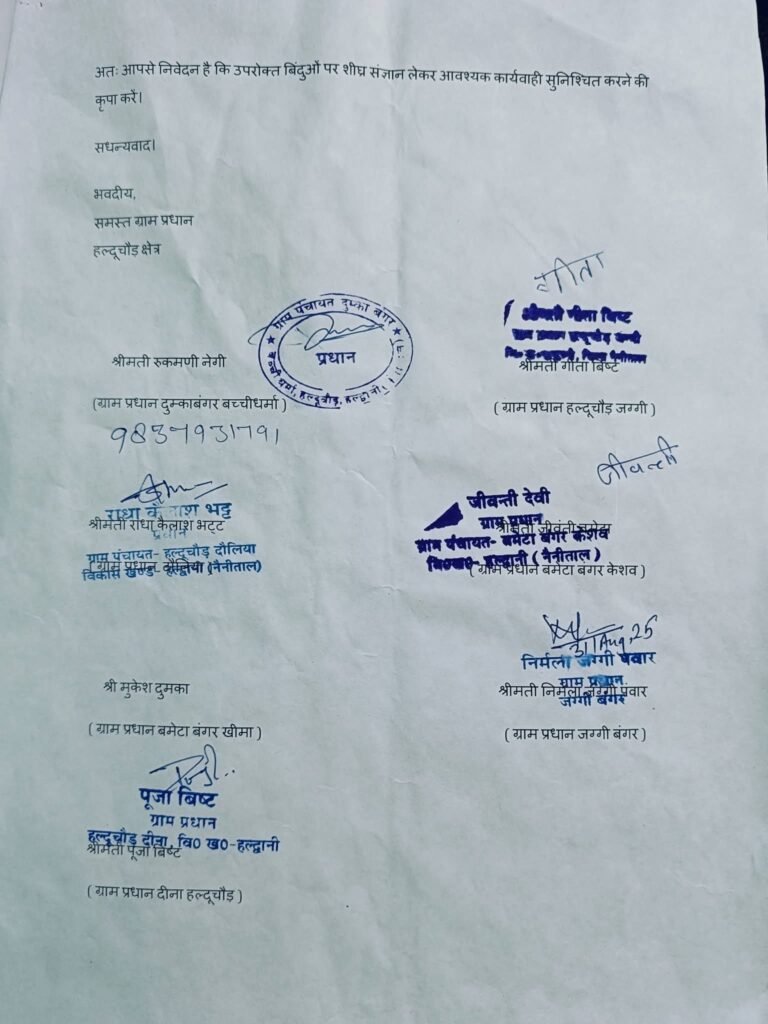 अतः आपसे निवेदन है कि उपरोक्त बिंदुओं पर शीघ्र संज्ञान लेकर आवश्यक कार्यवाही सुनिश्चित करने की
कृपा करें।
सधन्यवाद।
भवदीय,
समस्त ग्राम प्रधान
हल्दूचौड़ क्षेत्र
गीता
श्रीमती गीता बिष्ट
ग्राम पंचायत दुम्का बंगर
प्रधान
बच्ची धर्मा, हल्दूचौड़, हल्द्वानी
श्रीमती रुकमणी नेगी
श्रीमती गीता बिष्ट
(ग्राम प्रधान दुम्काबंगर बच्चीधर्मा )
( ग्राम प्रधान हल्दूचौड़ जग्गी )
9837931791
जीवन्ती
राधा कैलाश भट्ट
श्रीमती राधा कैलाश भट्ट
प्रधान
ग्राम पंचायत- हल्दूचौड़ दौलिया
विकास खण्ड- हल्द्वानी (नैनीताल)
( ग्राम प्रधान दौलिया )
जीवन्ती देवी
ग्राम प्रधान
श्रीमती जीवंती बमेटा
ग्राम पंचायत- बमेटा बंगर केशव
वि०ख०- हल्द्वानी ( नैनीताल )
( ग्राम प्रधान बमेटा बंगर केशव )
31 Aug, 25
निर्मला जग्गी पंवार
ग्राम प्रधान
श्रीमती निर्मला जग्गी पंवार
जग्गी बंगर
श्री मुकेश दुमका
( ग्राम प्रधान बमेटा बंगर खीमा )
( ग्राम प्रधान जग्गी बंगर )
पूजा बिष्ट
ग्राम प्रधान
हल्दूचौड़ दीना, वि० ख०-हल्द्वानी
श्रीमती पूजा बिष्ट
( ग्राम प्रधान दीना हल्दूचौड़ )